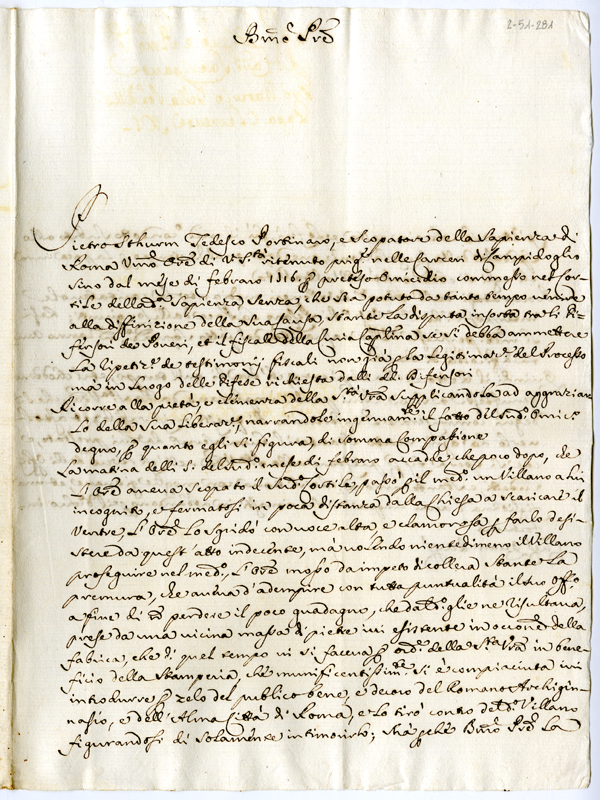 2-51-281
Bmo Pre
Pietro Sthurm Tedesco Portinaro, e Scopatore della Sapienza di
Roma Umo Ore di V. Sta ritenuto prige nelle Carceri di Campidoglio
sino dal mese di febraro 1716. p preteso Omicidio commesso nel Cor-
tile della da Sapienza senza che sia potuto da tanto tempo venire
alla diffinizione della sua Causa stante la disputa insorta tra li Di-
fensori de Poveri, et il fiscale della Curia Caplina se si debba ammettere
la ripetize de testimonij fiscali non già p la legitimaze del Processo
mà in luogo delle difese richiesta dalli di Difensori
Ricorre alla pietà, e clemenza della Sta Vra supplicandola ad aggraziar
lo della sua liberaze narrandole ingenuamte il fatto del sudo Omico
degno, p quanto egli si figura, di somma Compassione
La matina delli di del sudo mese di febraro accadde che poco dopo, che
l'Ore aveva scopato il sudo Cortile passò p il medo un Villano a lui
incognito, e fermatosi in poca distanza dalla Chiesa a scaricare il
Ventre, l'Ore lo sgridò con voce alta, e clamorosa p farlo desi-
stere da quest'atto indecente, mà volendo nientedimeno il Villano
proseguire nel medo, l'Ore mosso da impeto di collera stante la
premura, che aveva d'adempire con tutta puntualità il suo Offo
a fine di no perdere il poco guadagno, che da esso glie ne risultava,
prese da una vicina massa di pietre ivi esistente in occone della
fabrica, che di quel tempo ivi si faceva p ordne della Sta Vra in bene-
ficio della Stamperia, che munificentissimte si è compiaciuta ivi
introdurre p zelo del publico bene, e decoro del Romano Archigin-
nasio, e dell'Alma Città di Roma, e lo tirò contro detto Villano
figurandosi di solamente intimorirlo; Mà pche Bmo Pre la